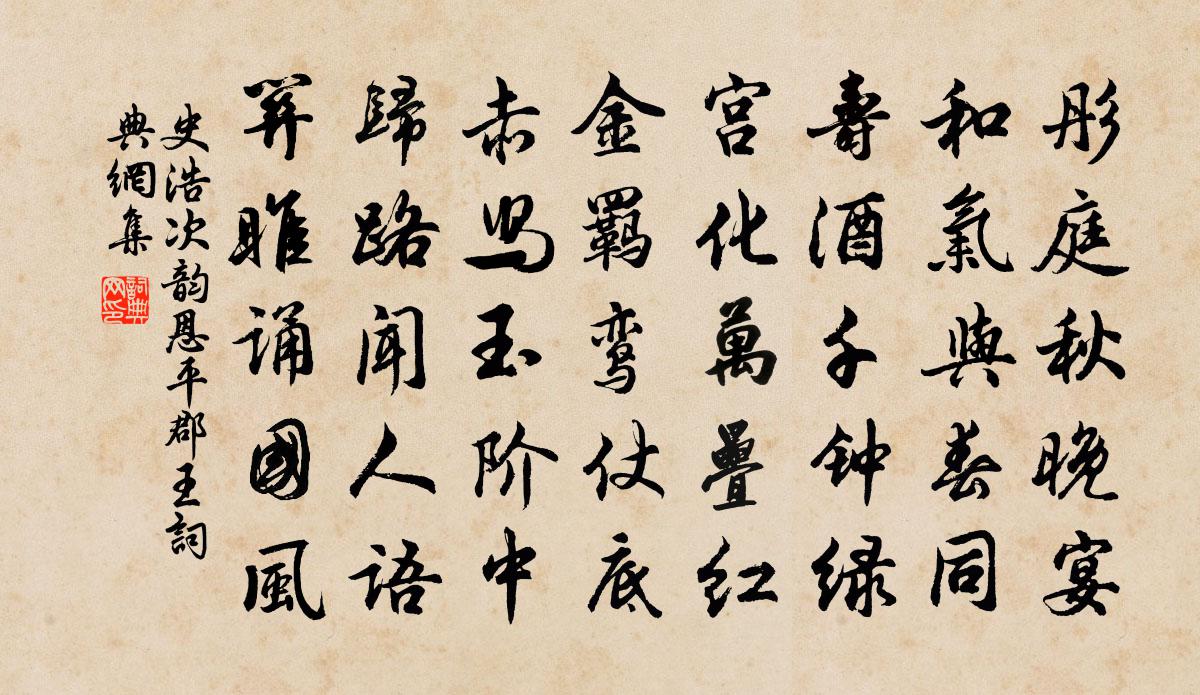 彤庭秋晚宴
和氣與春同
壽酒千钟绿
宫化萬疊红
金羁鸾仗底
赤舄玉阶中
歸路闻人语
關雎诵國風
史浩次韵恩平郡王詞
典網集
詞典
网印